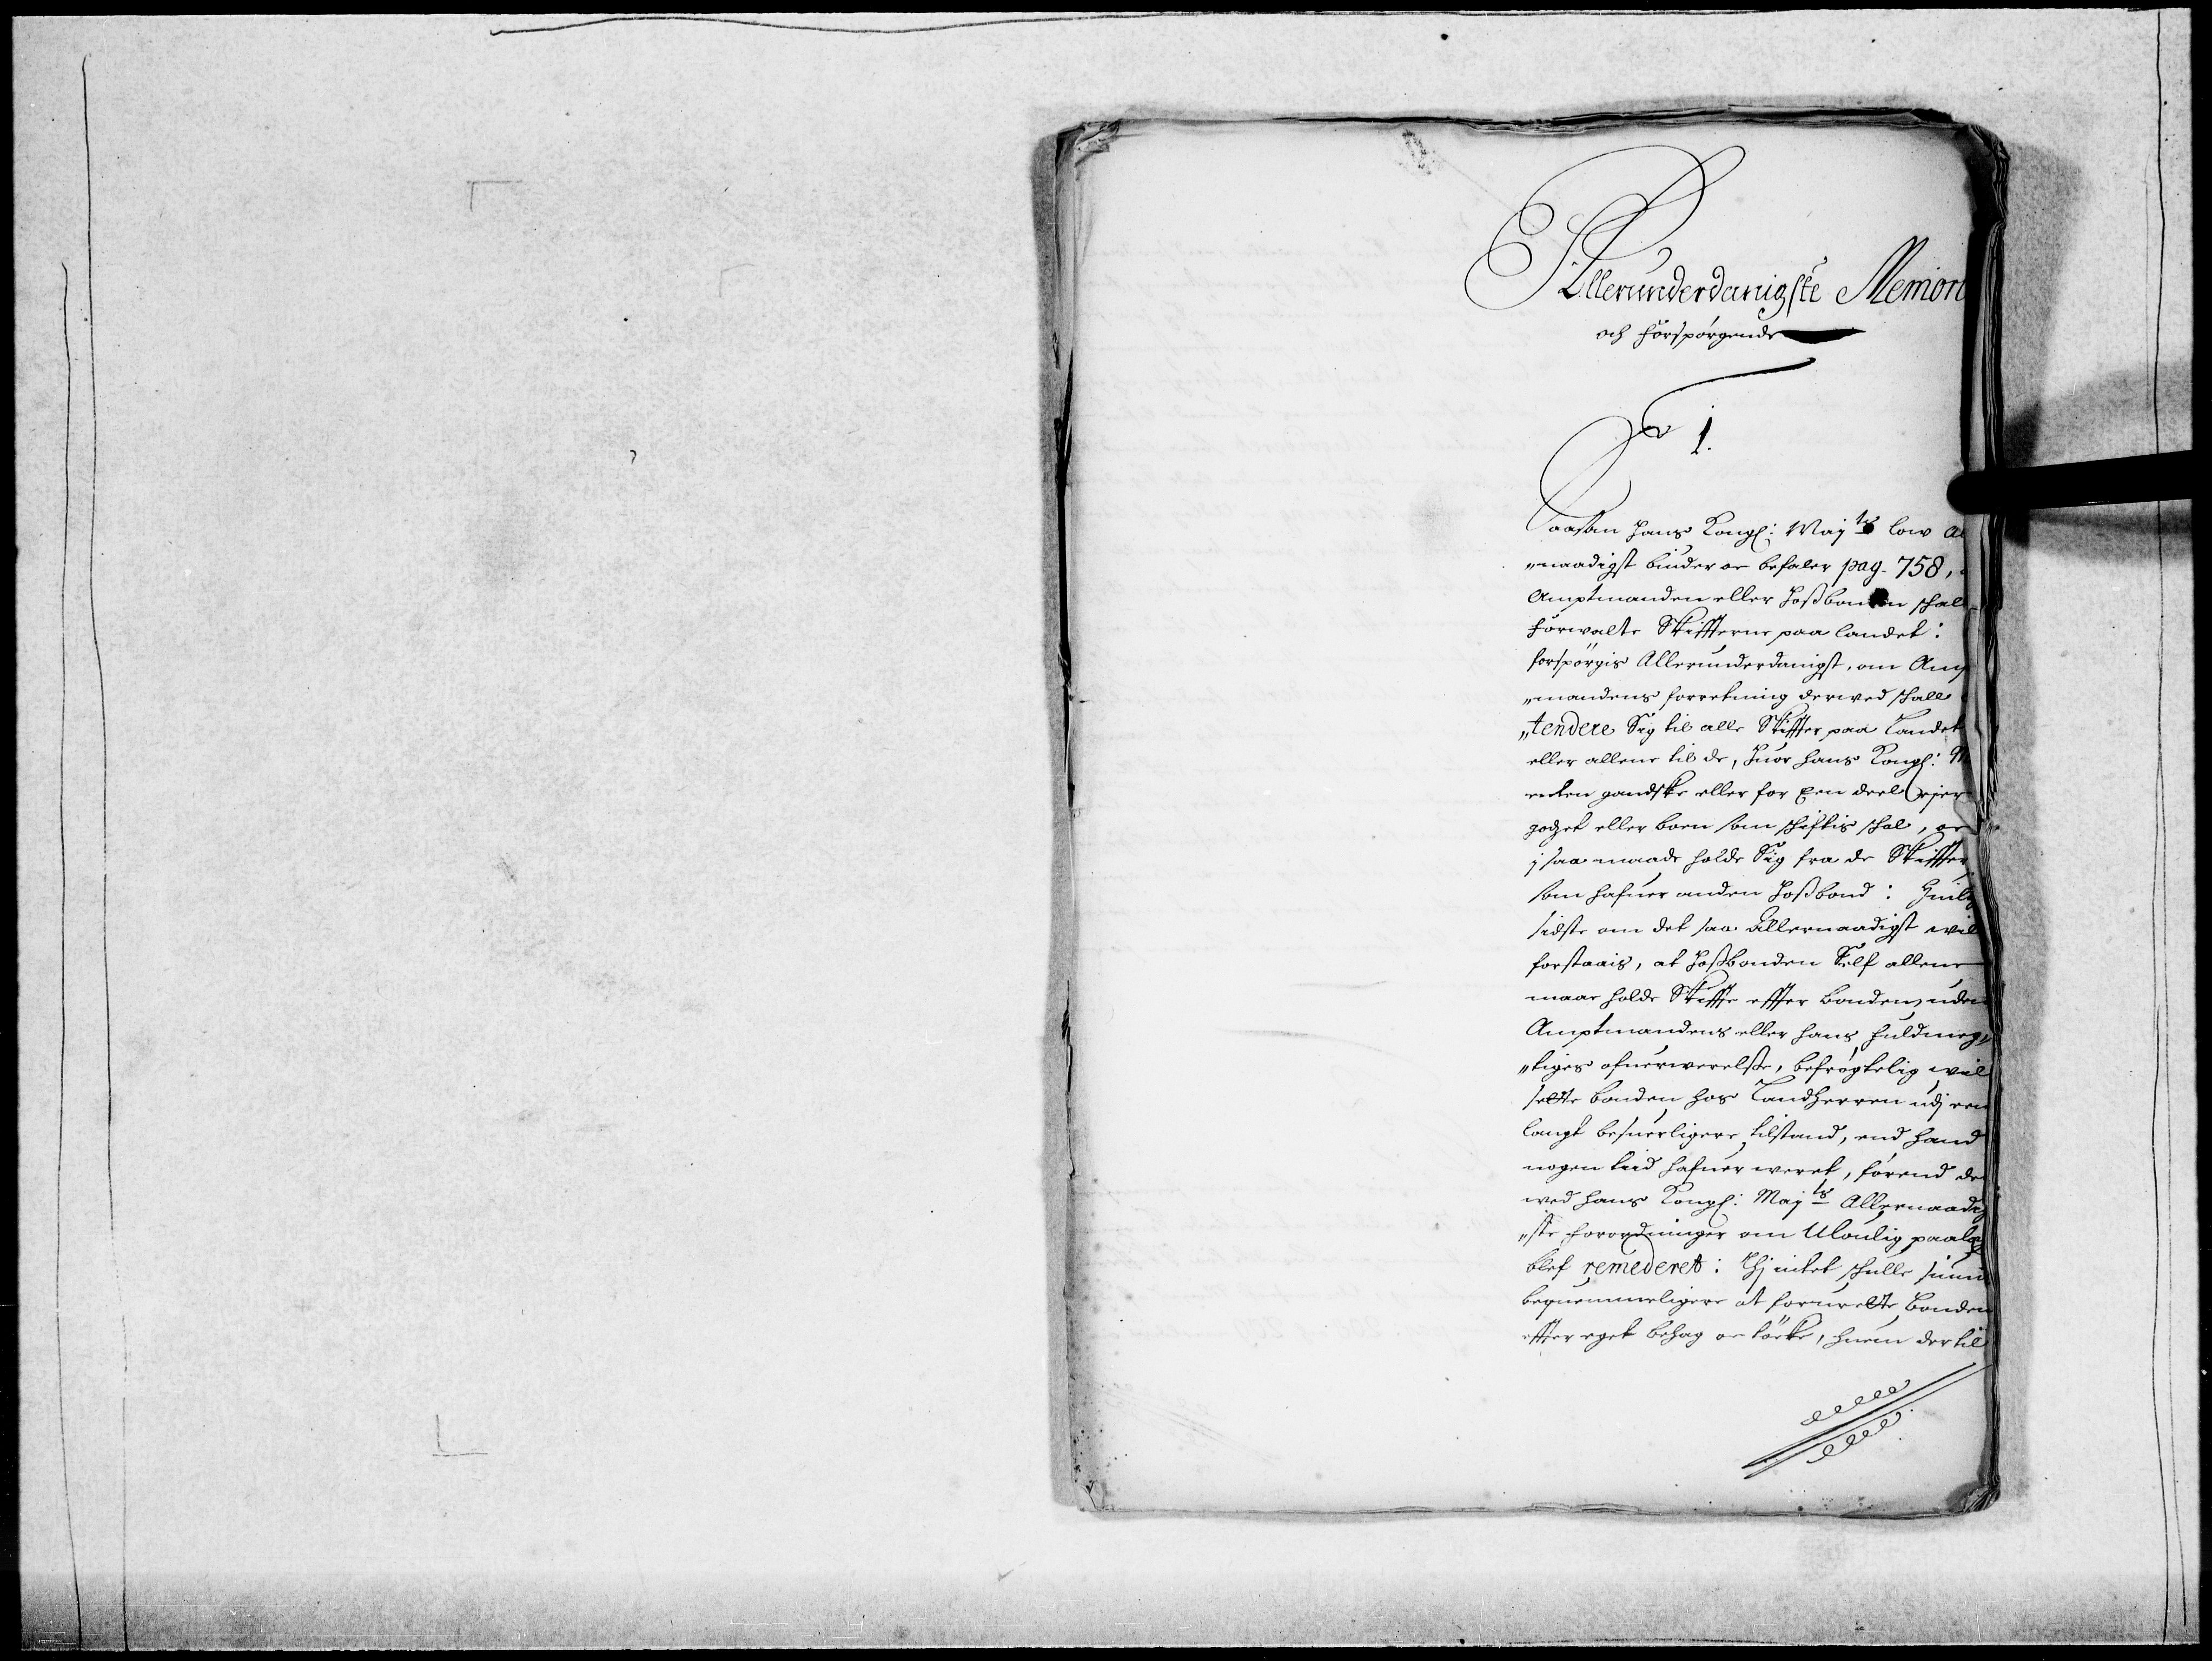 Allerunderdanigste Memori
och forspørgende
1.
Saasom hans Kongl: Maÿts low al
„naadigst biuder oc befaler pag. 758,
Amptmanden eller Hoßbonden schal
forwalte Skiffterne paa landet:
forspörgis Allerunderdanigst, om Amp
„mandens forretning derwed schall
„tendere Sig til alle Skiffter paa Landet
eller allene til de, huor hans Kongl: M
enten gandske eller for Een deel Eier
godzet eller boen som schiftis schal, oc
j saa maade holde Sig fra de Skiffter
som hafuer anden Hoßbond: Huilc
sidste om det saa allernaadigst wil
forstaais, at Hoßbonden Self allene
maae holde Skiffte effter bonden, uden
Amptmandens eller hans fuldmeg„
„tiges ofuerwerelße, befrøgtelig wil
sette bonden hos Landherren udj een
langt besuerligere tilstand, end hand
nogen tiid hafuer weret, førend de
wed hans Kongl: Maÿts Allernaadig
„ste forordninger om Ulowlig paaleg
blef remederet: Thj intet schulle siun
bequemmeligere at foruelte bonden
effter eget behag oc töcke, huem der til